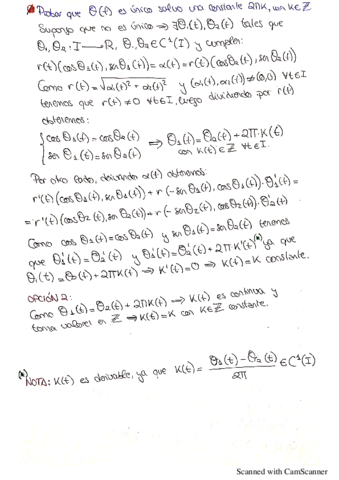 Probar que θ(t) es único salvo una constante 2πK, con K∈ℤ
Supongo que no es único ⟹ ∃θ₁(t), θ₂(t) tales que
θ₁, θ₂: I → ℝ, θ₁, θ₂ ∈ C¹(I) y cumplen:
r(t)(cosθ₁(t), senθ₁(t)) = α(t) = r(t)(cosθ₂(t), senθ₂(t))
Como r(t) = √(α₁(t)² + α₂(t)²) y (α₁(t), α₂(t)) ≠ (0,0) ∀t∈I
tenemos que r(t) ≠ 0 ∀t∈I, luego dividiendo por r(t)
obtenemos:
{cosθ₁(t) = cosθ₂(t) ⟹ θ₁(t) = θ₂(t) + 2πK(t)
{senθ₁(t) = senθ₂(t) con K(t)∈ℤ ∀t∈I.
Por otro lado, derivando α(t) obtenemos:
r'(t)(cosθ₁(t), senθ₁(t)) + r(-senθ₁(t), cosθ₁(t))·θ₁'(t) =
= r'(t)(cosθ₂(t), senθ₂(t)) + r(-senθ₂(t), cosθ₂(t))·θ₂'(t)
Como cosθ₁(t) = cosθ₂(t) y senθ₁(t) = senθ₂(t) tenemos
que θ₁'(t) = θ₂'(t) y θ₁'(t) = θ₂'(t) + 2πK'(t)(*) ya que
θ₁(t) = θ₂(t) + 2πK(t) ⟹ K'(t) = 0 ⟹ K(t) = K constante.
OPCIÓN 2:
Como θ₁(t) = θ₂(t) + 2πK(t) ⟹ K(t) es continua y
toma valores en ℤ ⟹ K(t) = K con K∈ℤ constante.
(*) NOTA: K(t) es derivable, ya que K(t) = (θ₁(t) - θ₂(t))/2π ∈ C¹(I)
Scanned with CamScanner